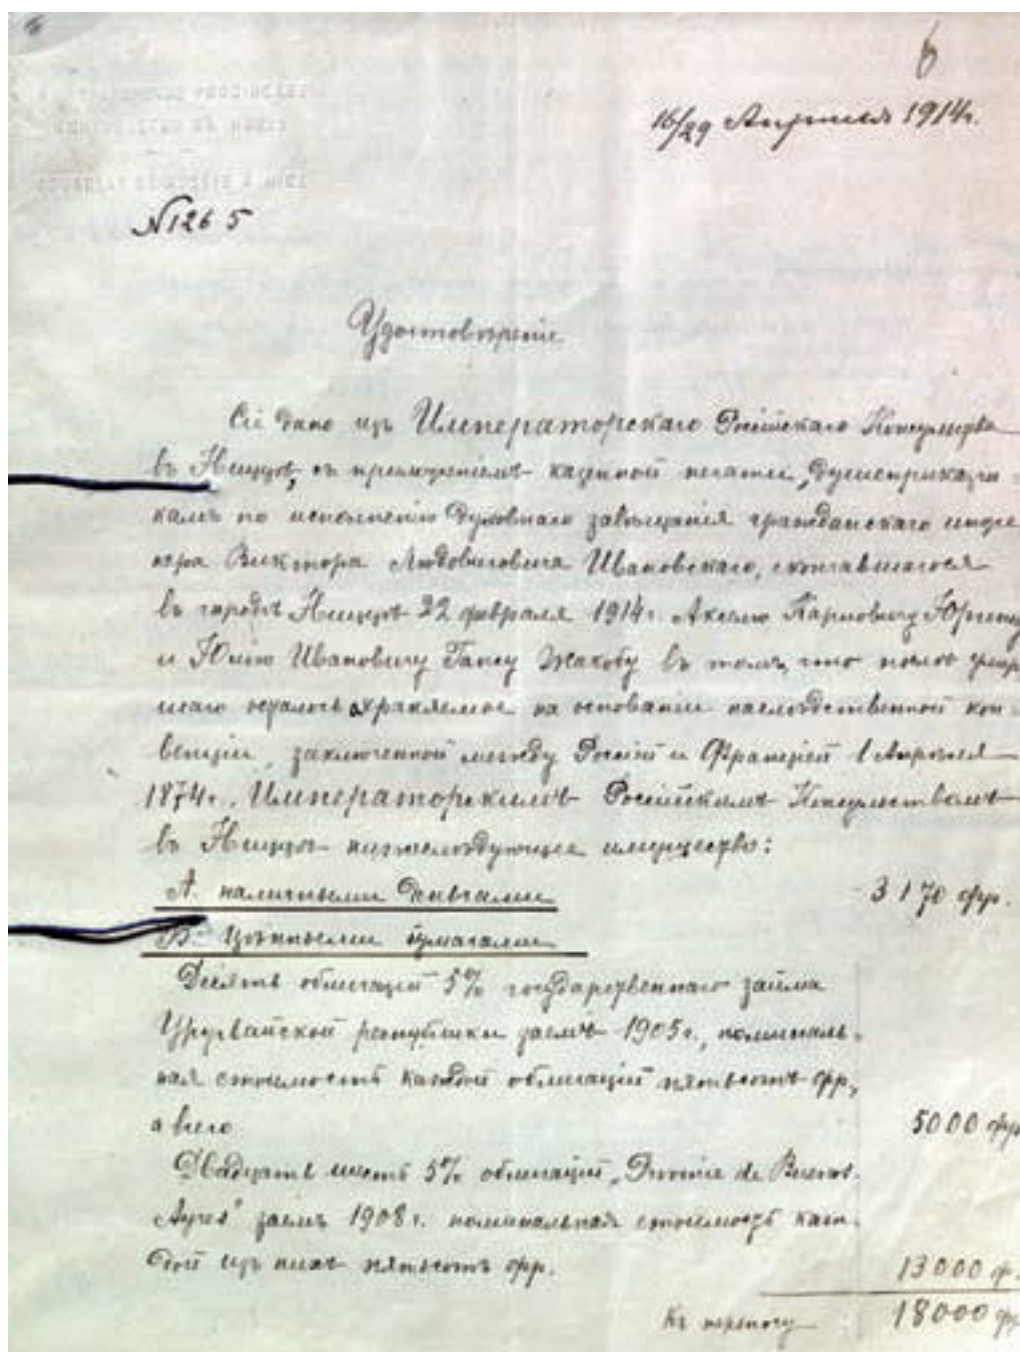 6
16/29 Апрѣля 1914г.
№1265
Удостовѣреніе
Сіе дано изъ Императорскаго Россійскаго Консульства
въ Ниццѣ, съ приложеніемъ казенной печати, душеприказчи-
камъ по исполненію духовнаго завѣщанія гражданскаго инже
нера Виктора Людвиговича Ивановскаго, скончавшагося
въ городѣ Ниццѣ 22 февраля 1914г. Акселю Карловичу
и Юлію Ивановичу Гансу Жакобу въ томъ, что послѣ умер
шаго осталось охраняемое на основаніи наслѣдственной кон-
венціи, заключенной между Россіей и Франціей 1 Апрѣля
1874г. Императорскимъ Россійскимъ Консульствомъ
въ Ниццѣ нижеслѣдующее имущество:
А. наличными деньгами 3170 фр.
Б. Цѣнными бумагами
Десять облигацій 5% государственнаго займа
Уругвайской республики заемъ 1905г., номиналь-
ная стоимость каждой облигаціи пятьсотъ фр,
а всего 5000 фр
Двадцать шесть 5% облигацій „Province de Buenos-
Ayres" заемъ 1908г. номинальная стоимость каж-
дой изъ нихъ пятьсотъ фр. 13000 ф.
Къ переносу 18000 фр